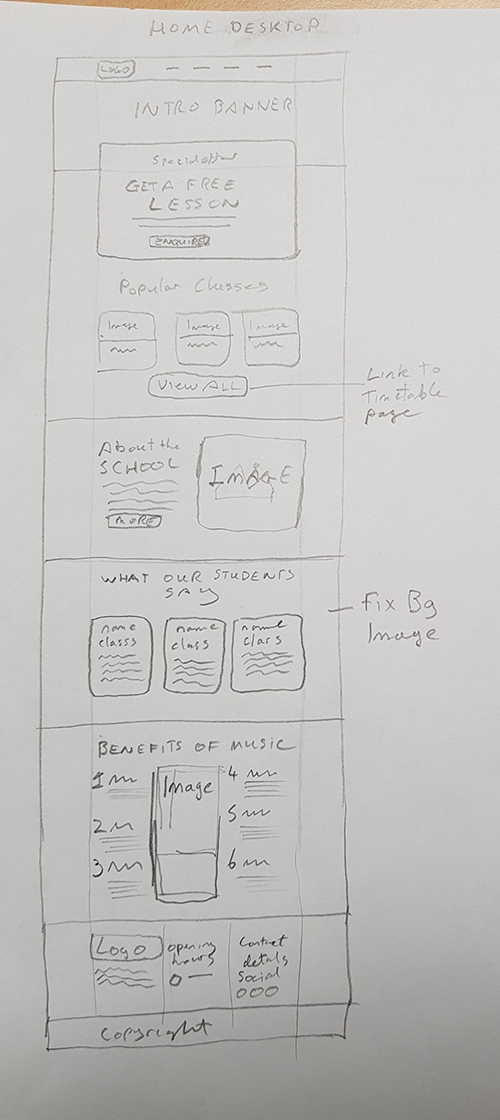 HOME DESKTOP
LOGO
INTRO BANNER
Special offer
GET A FREE
LESSON
ENQUIRE
Popular Classes
Image Image Image
VIEW ALL
Link to
Timetable
page
About the
SCHOOL
IMAGE
MORE
WHAT OUR STUDENTS
SAY
Fix Bg
Image
name name name
classs class class
BENEFITS OF MUSIC
1 Image 4
2 5
3 6
Logo opening Contact
hours details
Social
Copyright